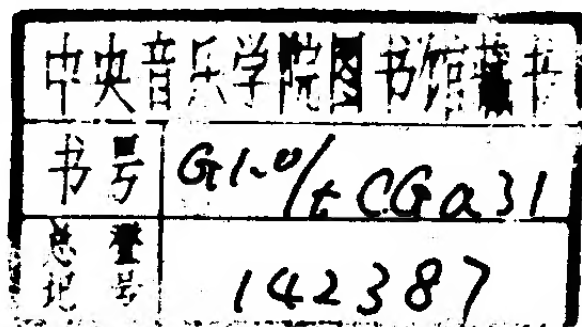 中央音乐学院图书馆藏书
书号 G1.0/t CGa31
总登记号 142387